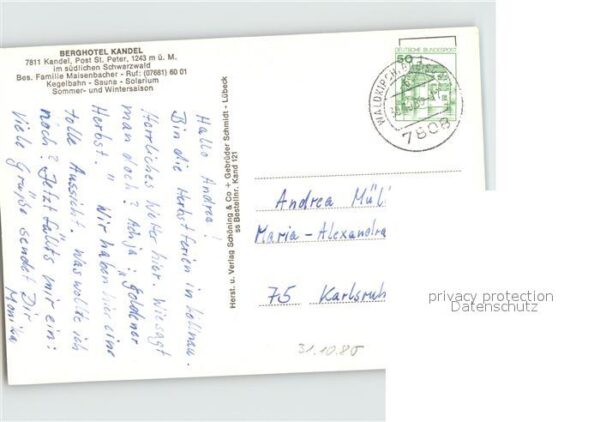 BERGHOTEL KANDEL
7811 Kandel, Post St. Peter, 1243 m ü. M.
im südlichen Schwarzwald
Bes. Familie Maisenbacher - Ruf: (07681) 60 01
Kegelbahn - Sauna - Solarium
Sommer- und Wintersaison
Hallo Andrea!
Bin die Herbstferien in
Herrliches Wetter hier. Wie sagt
man doch? Achja: „Goldener
Herbst." Wir haben hier eine
tolle Aussicht. Was wollte ich
noch? Jetzt fällts mir ein:
Viele Grüße sendet Dir
Monika
Herst. u. Verlag Schöning & Co + Gebrüder Schmidt - Lübeck
ss Bestellnr. Kand 121
50
DEUTSCHE BUNDESPOST
WALDKIRCH
7808
Andrea Mül
Maria-Alexandra
75 Karlsruh
31.10.85
privacy protection
Datenschutz